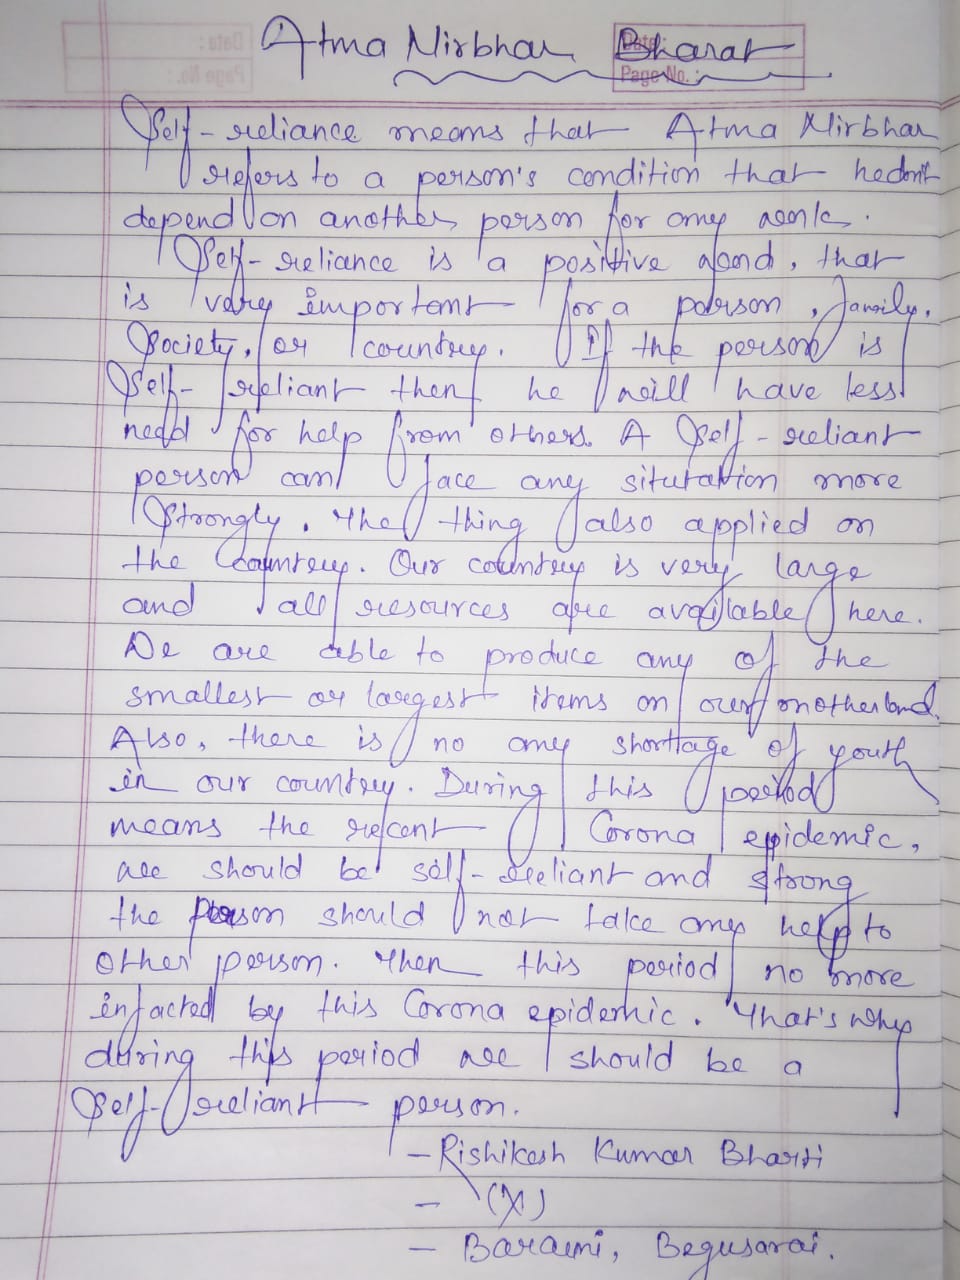 Atma Nirbhar Bharat
Date:
Page No.:
Self-reliance means that Atma Nirbhar
refers to a person's condition that he don't
depend on another person for any work.
Self-reliance is a positive word, that
is very important for a person, family,
Society, or country. If the person is
Self-reliant then he will have less
need for help from others. A Self-reliant
person can face any situtation more
Strongly. The thing also applied on
the country. Our country is very large
and all resources are available here.
We are able to produce any of the
smallest or largest items on our motherland.
Also, there is no any shorttage of youth
in our country. During this period
means the recent Corona epidemic,
we should be self-reliant and strong
the person should not take any help to
other person. Then this period no more
infacted by this Corona epidemic. That's why
during this period we should be a
Self-reliant person.
- Rishikesh Kumar Bharti
- (X)
- Barauni, Begusarai.